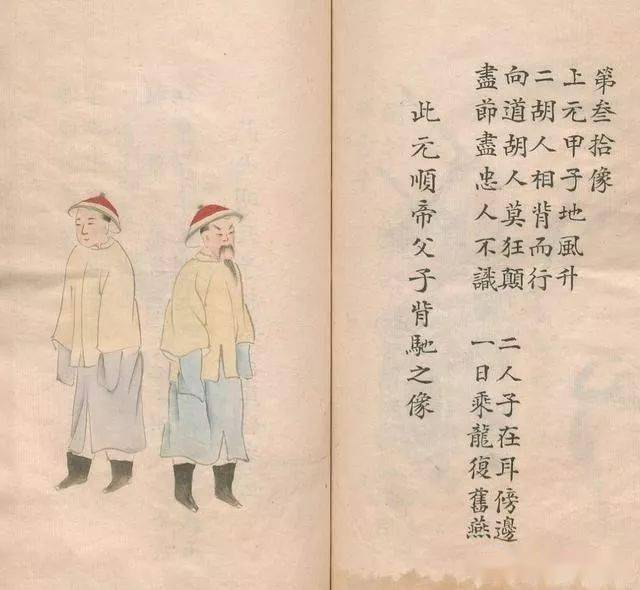 第叁拾像
上元甲子地風升
二胡人相背而行
向道胡人莫狂顛 二人子在耳傍邊
盡節盡忠人不識 一日乘龍復舊燕
此元順帝父子背馳之像